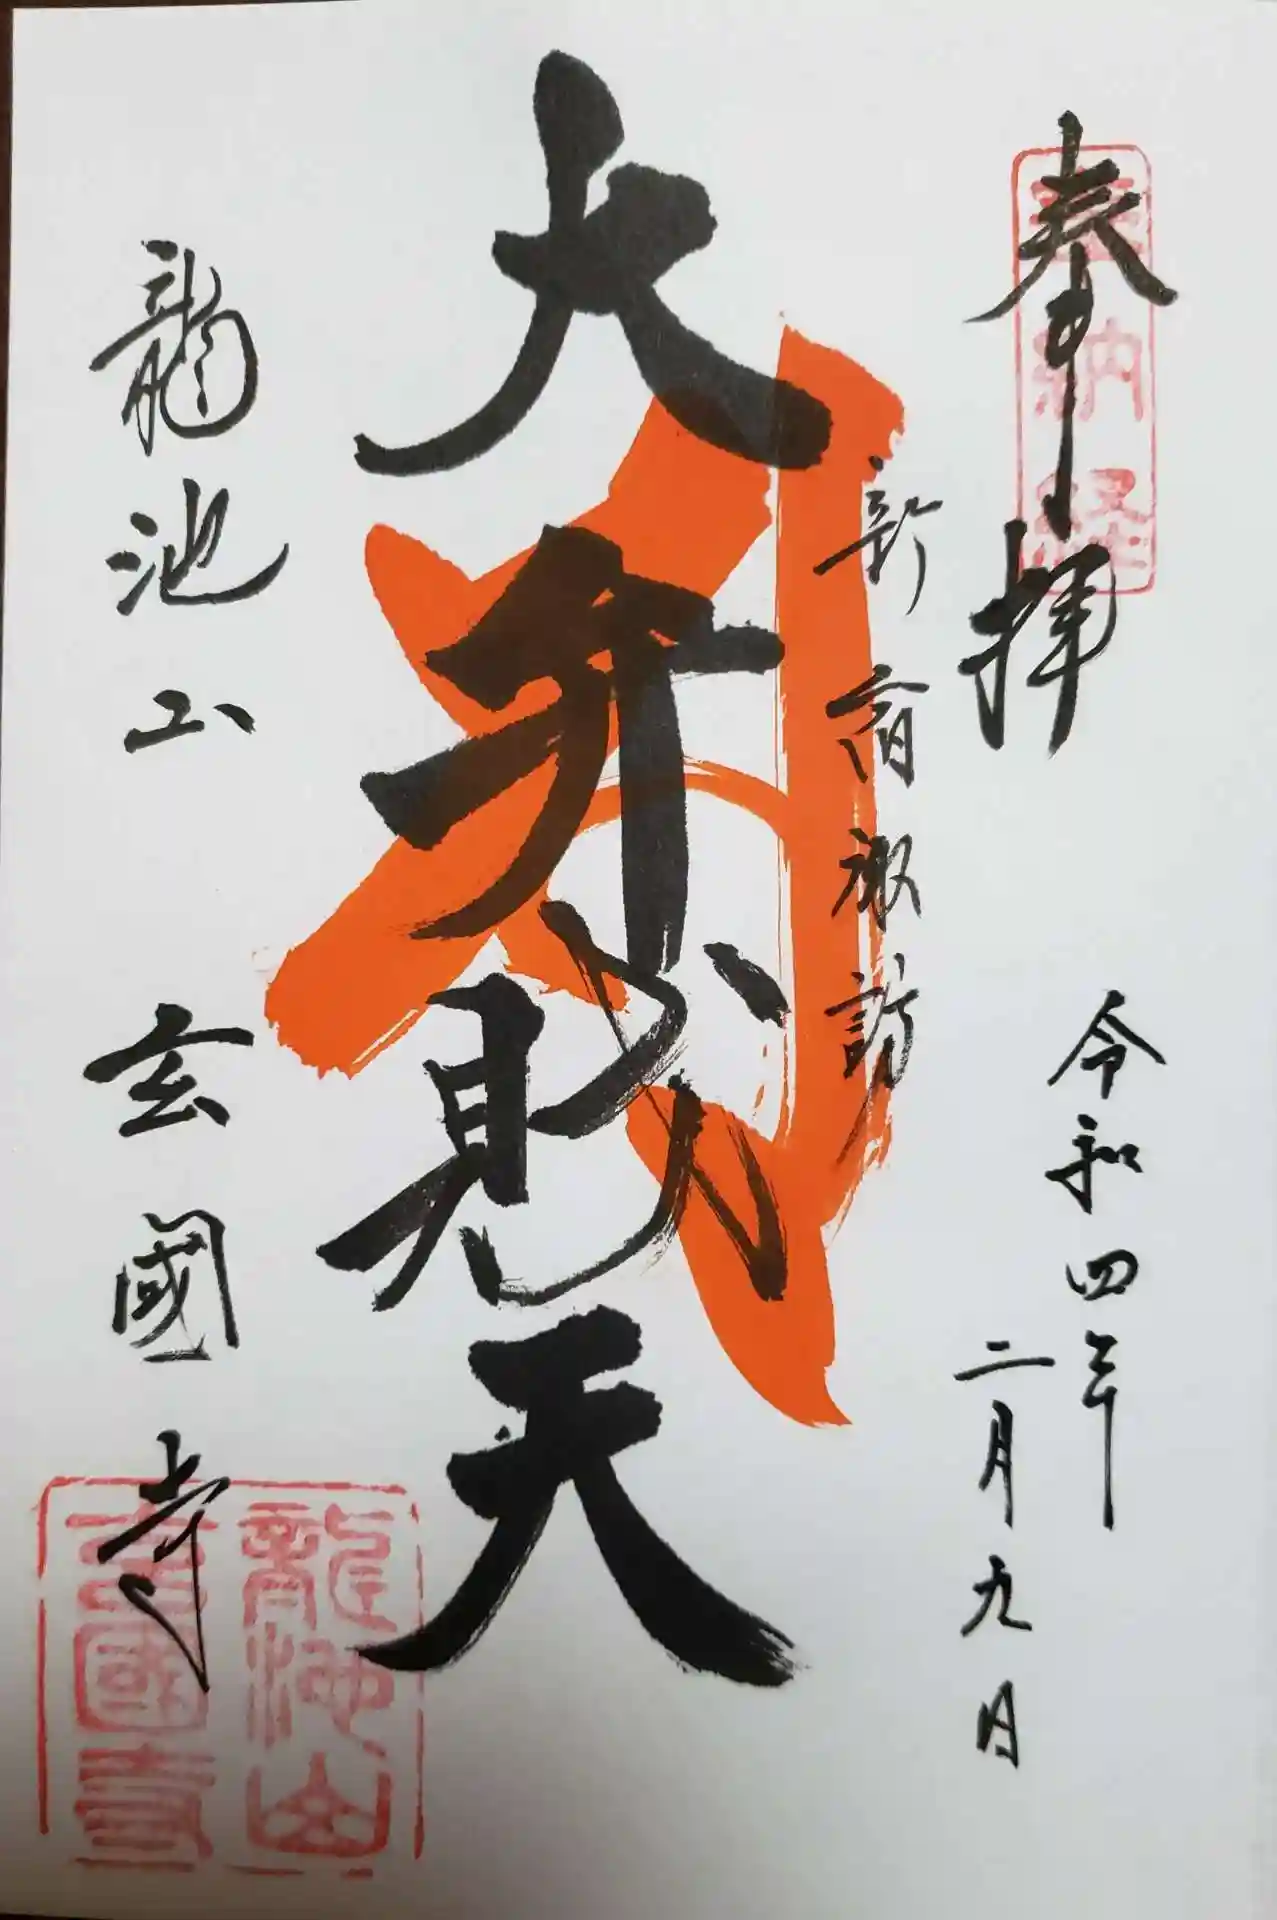 奉拝
奉納経
令和四年
二月九日
新宿諏訪
大弁財天
龍池山 玄國寺
龍池山
玄國寺